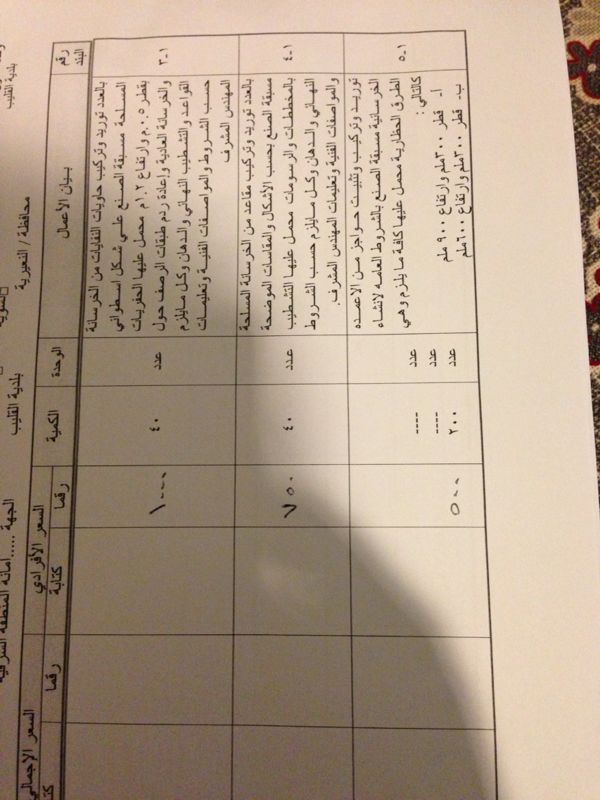 بلدية القليب
محافظة / النعيرية
بلدية القليب
الجهة ..... أمانة المنطقة الشرقية
رقم البند
بيان الأعمال
الوحدة
الكمية
السعر الأفرادي
السعر الإجمالي
رقما
كتابة
رقما
٣-١
بالعدد توريد وتركيب حاويات النفايات من الخرسانة
المسلحة مسبقة الصنع على شكل اسطواني
بقطر ٠.٥م وارتفاع ١.٢م محمل عليها الحفريات
والخرسانة العادية وإعادة ردم طبقات الرصف حول
القواعد والتشطيب النهائي والدهان وكل مايلزم
حسب الشروط والمواصفات الفنية وتعليمات
المهندس المشرف
عدد
٤٠
١٠٠٠
٤-١
بالعدد توريد وتركيب مقاعد من الخرسانة المسلحة
مسبقة الصنع بحسب الأشكال والمقاسات الموضحة
بالمخططات والرسومات محمل عليها التشطيب
النهائي والدهان وكل مايلزم حسب الشروط
والمواصفات الفنية وتعليمات المهندس المشرف.
عدد
٤٠
٧٥٠
٥-١
توريد وتركيب وتثبيت حواجز من الاعمده
الخرسانية مسبقة الصنع بالشروط العامه لانشاء
الطرق الحظارية محمل عليها كافة ما يلزم وهي
كالتالي :
أ- قطر ٣٠٠ملم وارتفاع ٩٠٠ ملم
ب- قطر ٢٠٠ملم وارتفاع ٦٠٠ملم
عدد
----
عدد
----
عدد
٢٠٠
٥٠٠